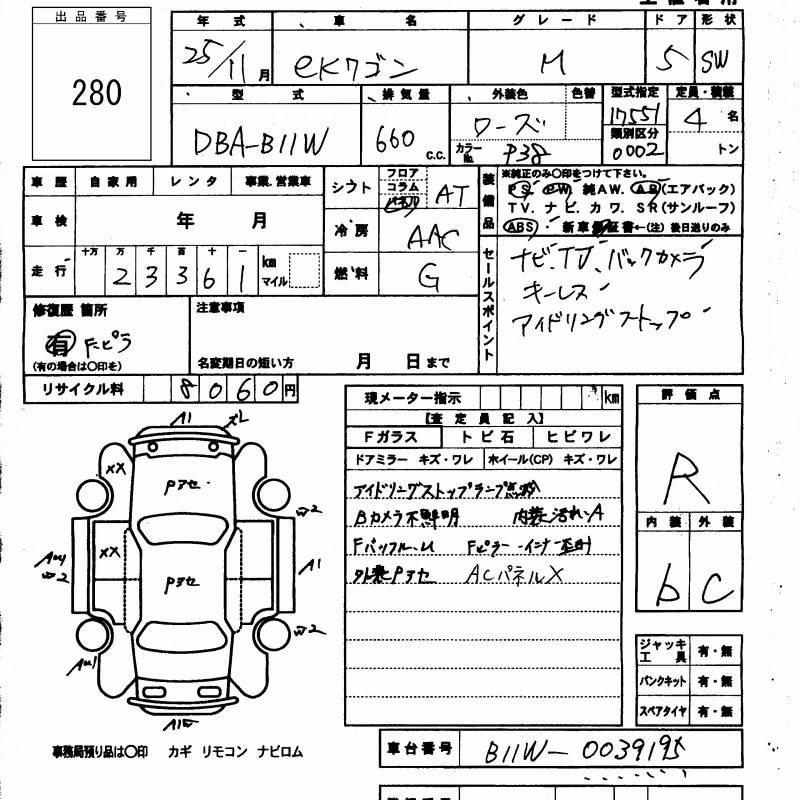 出品番号
280
年式 車名 グレード ドア 形状
25/11月 eKワゴン M 5 SW
型式 排気量 外装色 色替 型式指定 定員・積載
DBA-B11W 660 c.c. ローズ 17551 4名
カラーNo. P38 類別区分 0002 トン
車歴 自家用 レンタ 事業・営業車
シフト フロア コラム AT
車検 年 月
冷房 AAC
走行 十万 万 千 百 十 一 km マイル
23361
燃料 G
装備品
※純正のみ〇印をつけて下さい。
PS PW 純AW. AB(エアバック)
TV. ナビ. カワ. SR(サンルーフ)
ABS・ 新車保証書←(注) 後日送りのみ
セールスポイント
ナビ、TV、バックカメラ
キーレス
アイドリングストップ
修復歴 箇所
有 Fピラ
(有の場合は〇印を)
注意事項
名変期日の短い方 月 日まで
リサイクル料 8060円
現メーター指示 km
【査定員記入】
Fガラス トビ石 ヒビワレ
ドアミラー キズ・ワレ ホイール(CP) キズ・ワレ
アイドリングストップランプ点灯
Bカメラ不鮮明 内装汚れ・A
Fピラーインナー歪
外装Pヌセ ACパネルX
評価点
R
内装 外装
b C
ジャッキ工具 有・無
パンクキット 有・無
スペアタイヤ 有・無
A1
XX
Pヌセ
W2
XX
Pヌセ
A1
W2
W2
事務局預り品は〇印 カギ リモコン ナビロム
車台番号 B11W-0039195